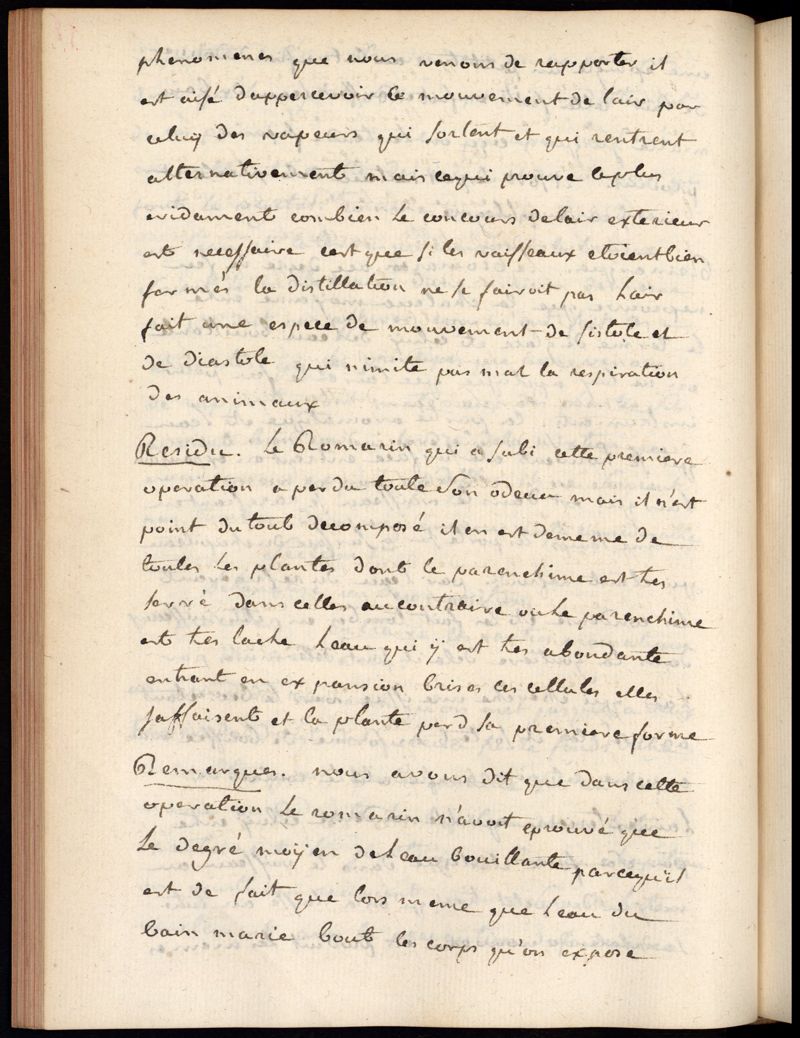 phenomenes que nous venons de rapporter il
est aisé dappercevoir le mouvement de lair par
celuy des vapeurs qui sortent et qui rentrent
alternativement mais cequi prouve leplus
evidament combien le concours delair exterieur
est necessaire cest que si les vaisseaux etoient bien
fermés la distillation ne se fairoit pas Lair
fait une espece de mouvement de sistole et
de diastole qui nimite pas mal la respiration
des animaux
Residu. Le Romarin qui a subi cette premiere
operation a perdu toute son odeur mais il n'est
point du tout decomposé il en est dememe de
toutes les plantes dont le parenchime est tres
serré dans celles aucontraire ou le parenchime
est tres lache Leau qui ÿ est tres abondante
entrant en expansion brise ces cellules elles
saffaisent et la plante perd sa premiere forme
Remarques. nous avons dit que dans cette
operation le romarin n'avoit eprouvé que
Le degré moÿen deLeau bouillante parcequ'il
est de fait que lors meme que Leau du
bain marie bout les corps qu'on expose